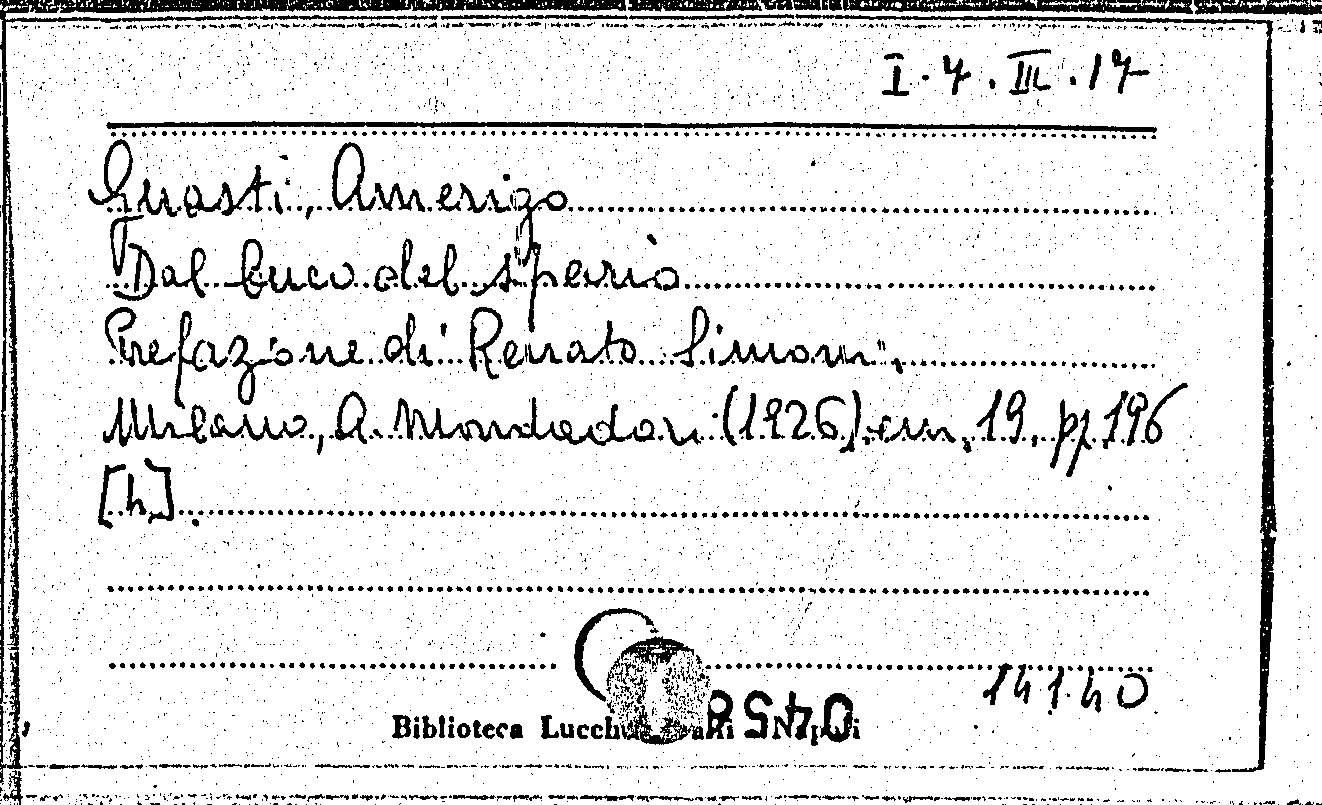 I. 7. III. 17
Guasti, Amerigo
Dal buco del sipario
Prefazione di Renato Simoni,
Milano, A. Mondadori (1926), cm. 19, pp. 196
[h].
14140
Biblioteca Lucchesi Palli Napoli